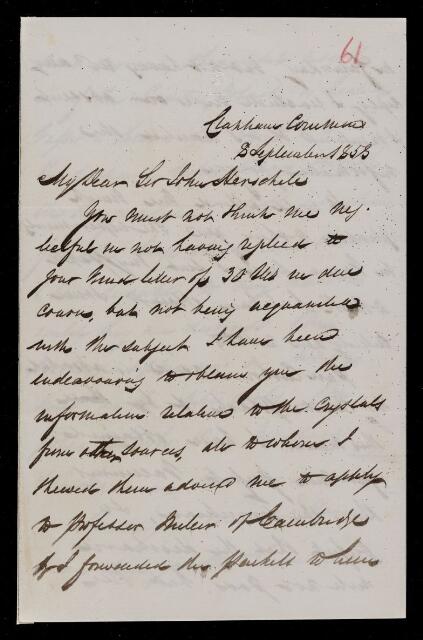 61
Clapham Common
3 September 1853
My Dear Sir John Herschele
You must not think me neg-
lectful in not having replied to
your kind letter of 30 Ult in due
course, but not being acquainted
with the subject I have been
endeavouring to obtain you the
information relative to the Crystals
from other sources, all to whom I
shewed them advised me to apply
to Professor Miller of Cambridge
& I forwarded the Packett to him